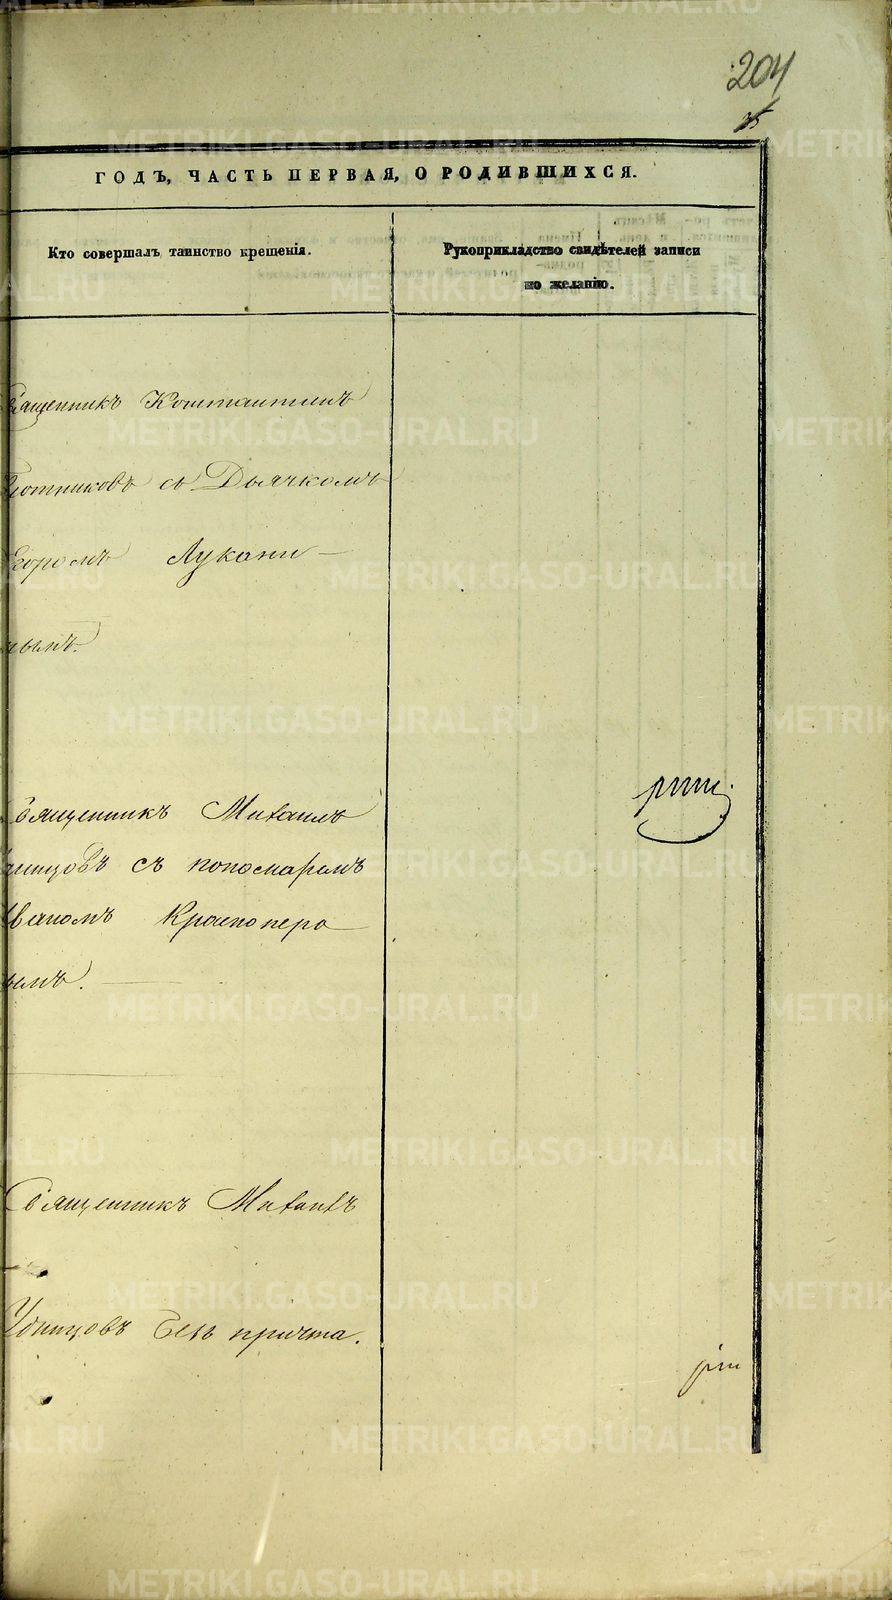 204
ГОДЪ, ЧАСТЬ ПЕРВАЯ, О РОДИВШИХСЯ.
Кто совершалъ таинство крещенія.
Рукоприкладство свидѣтелей записи
по желанію.
Священникъ Константинъ
отниковъ съ Дьячкомъ
Егоромъ Лукани–
нымъ.
Священникъ Михаилъ
съ пономаремъ
Иваномъ Краснопера
вымъ.
Священникъ Михаилъ
Удинцовъ безъ причта.
METRIKI.GASO-URAL.RU